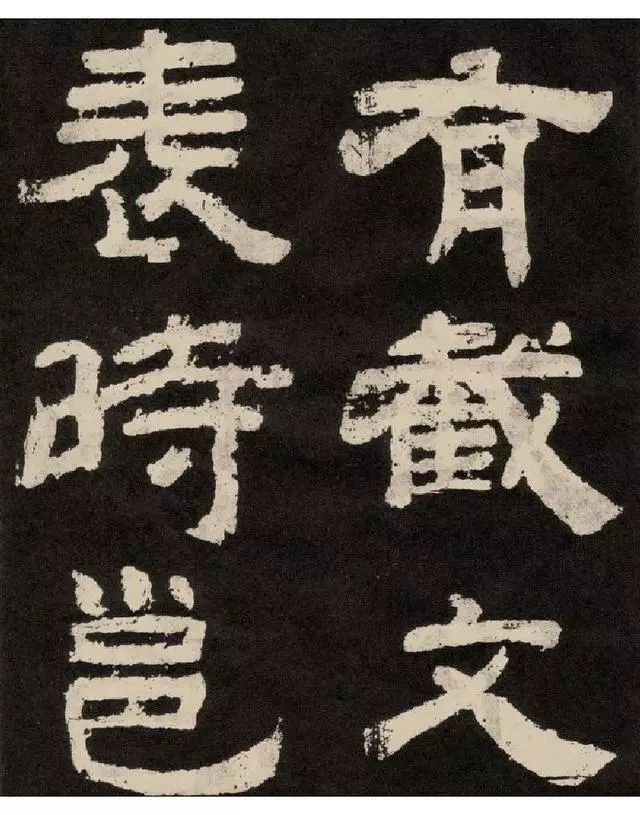 有截文
表時邕